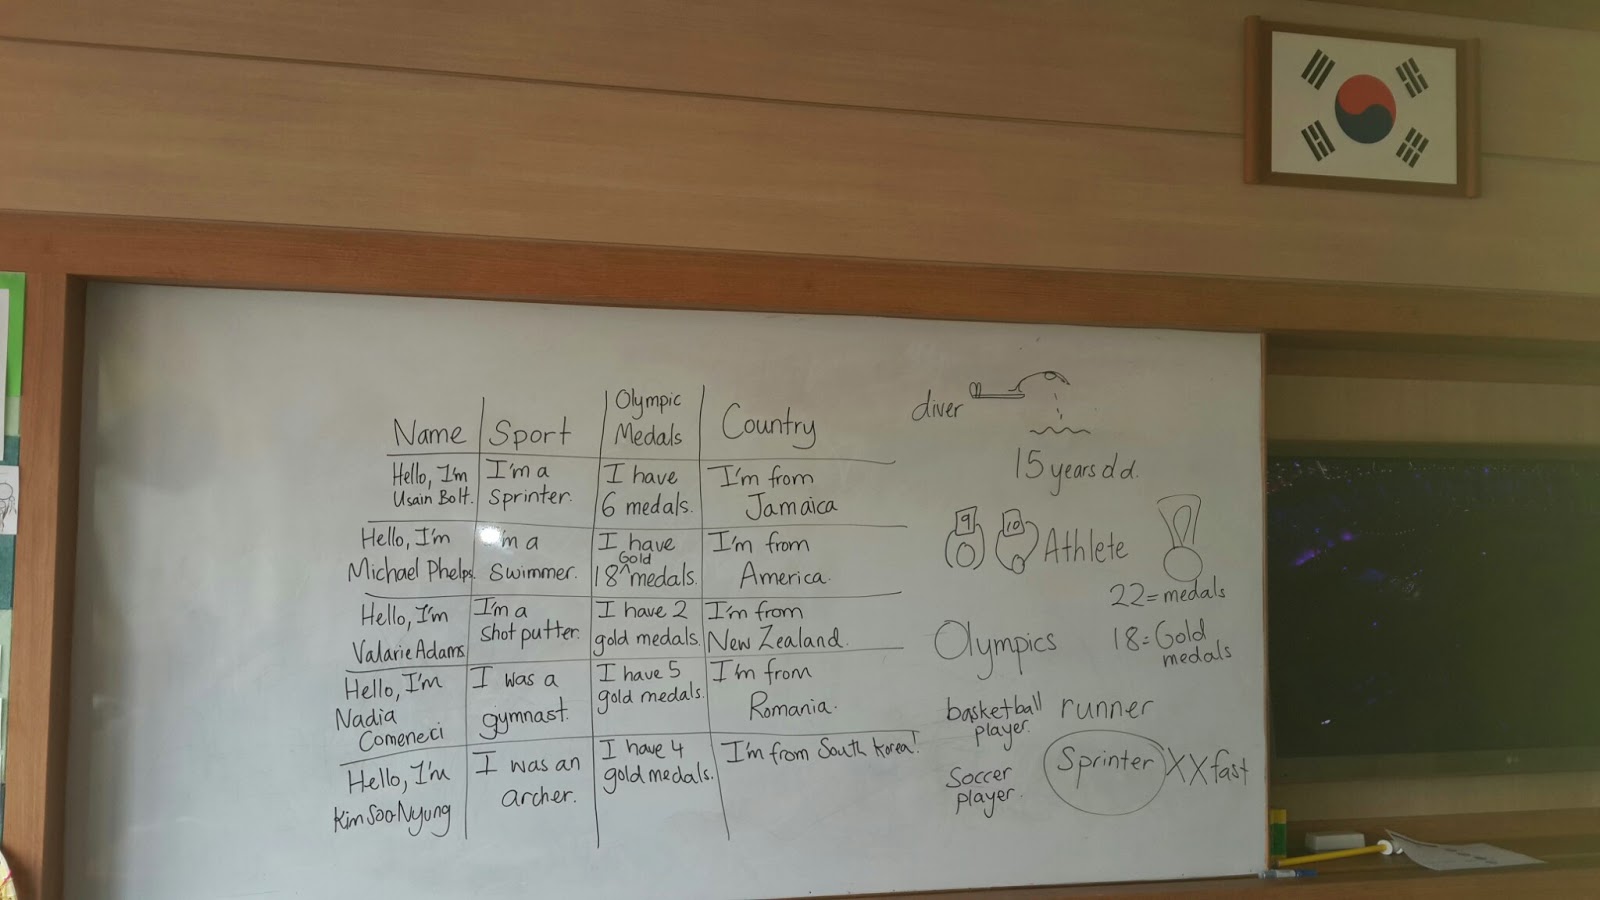 Name Sport Olympic Medals Country
Hello, I'm
Usain Bolt.
I'm a
Sprinter.
I have
6 medals.
I'm from
Jamaica
Hello, I'm
Michael Phelps.
I'm a
Swimmer.
I have
18 Gold medals.
I'm from
America.
Hello, I'm
Valarie Adams
I'm a
Shot putter.
I have 2
gold medals.
I'm from
New Zealand.
Hello, I'm
Nadia
Comeneci
I was a
gymnast.
I have 5
gold medals.
I'm from
Romania.
Hello, I'm
Kim Soo Nyung
I was an
archer.
I have 4
gold medals.
I'm from South Korea!
diver
15 years old.
9 10 Athlete
22 = medals
Olympics
18 = Gold
medals
basketball
player.
runner
Soccer
player.
Sprinter XX fast
LG